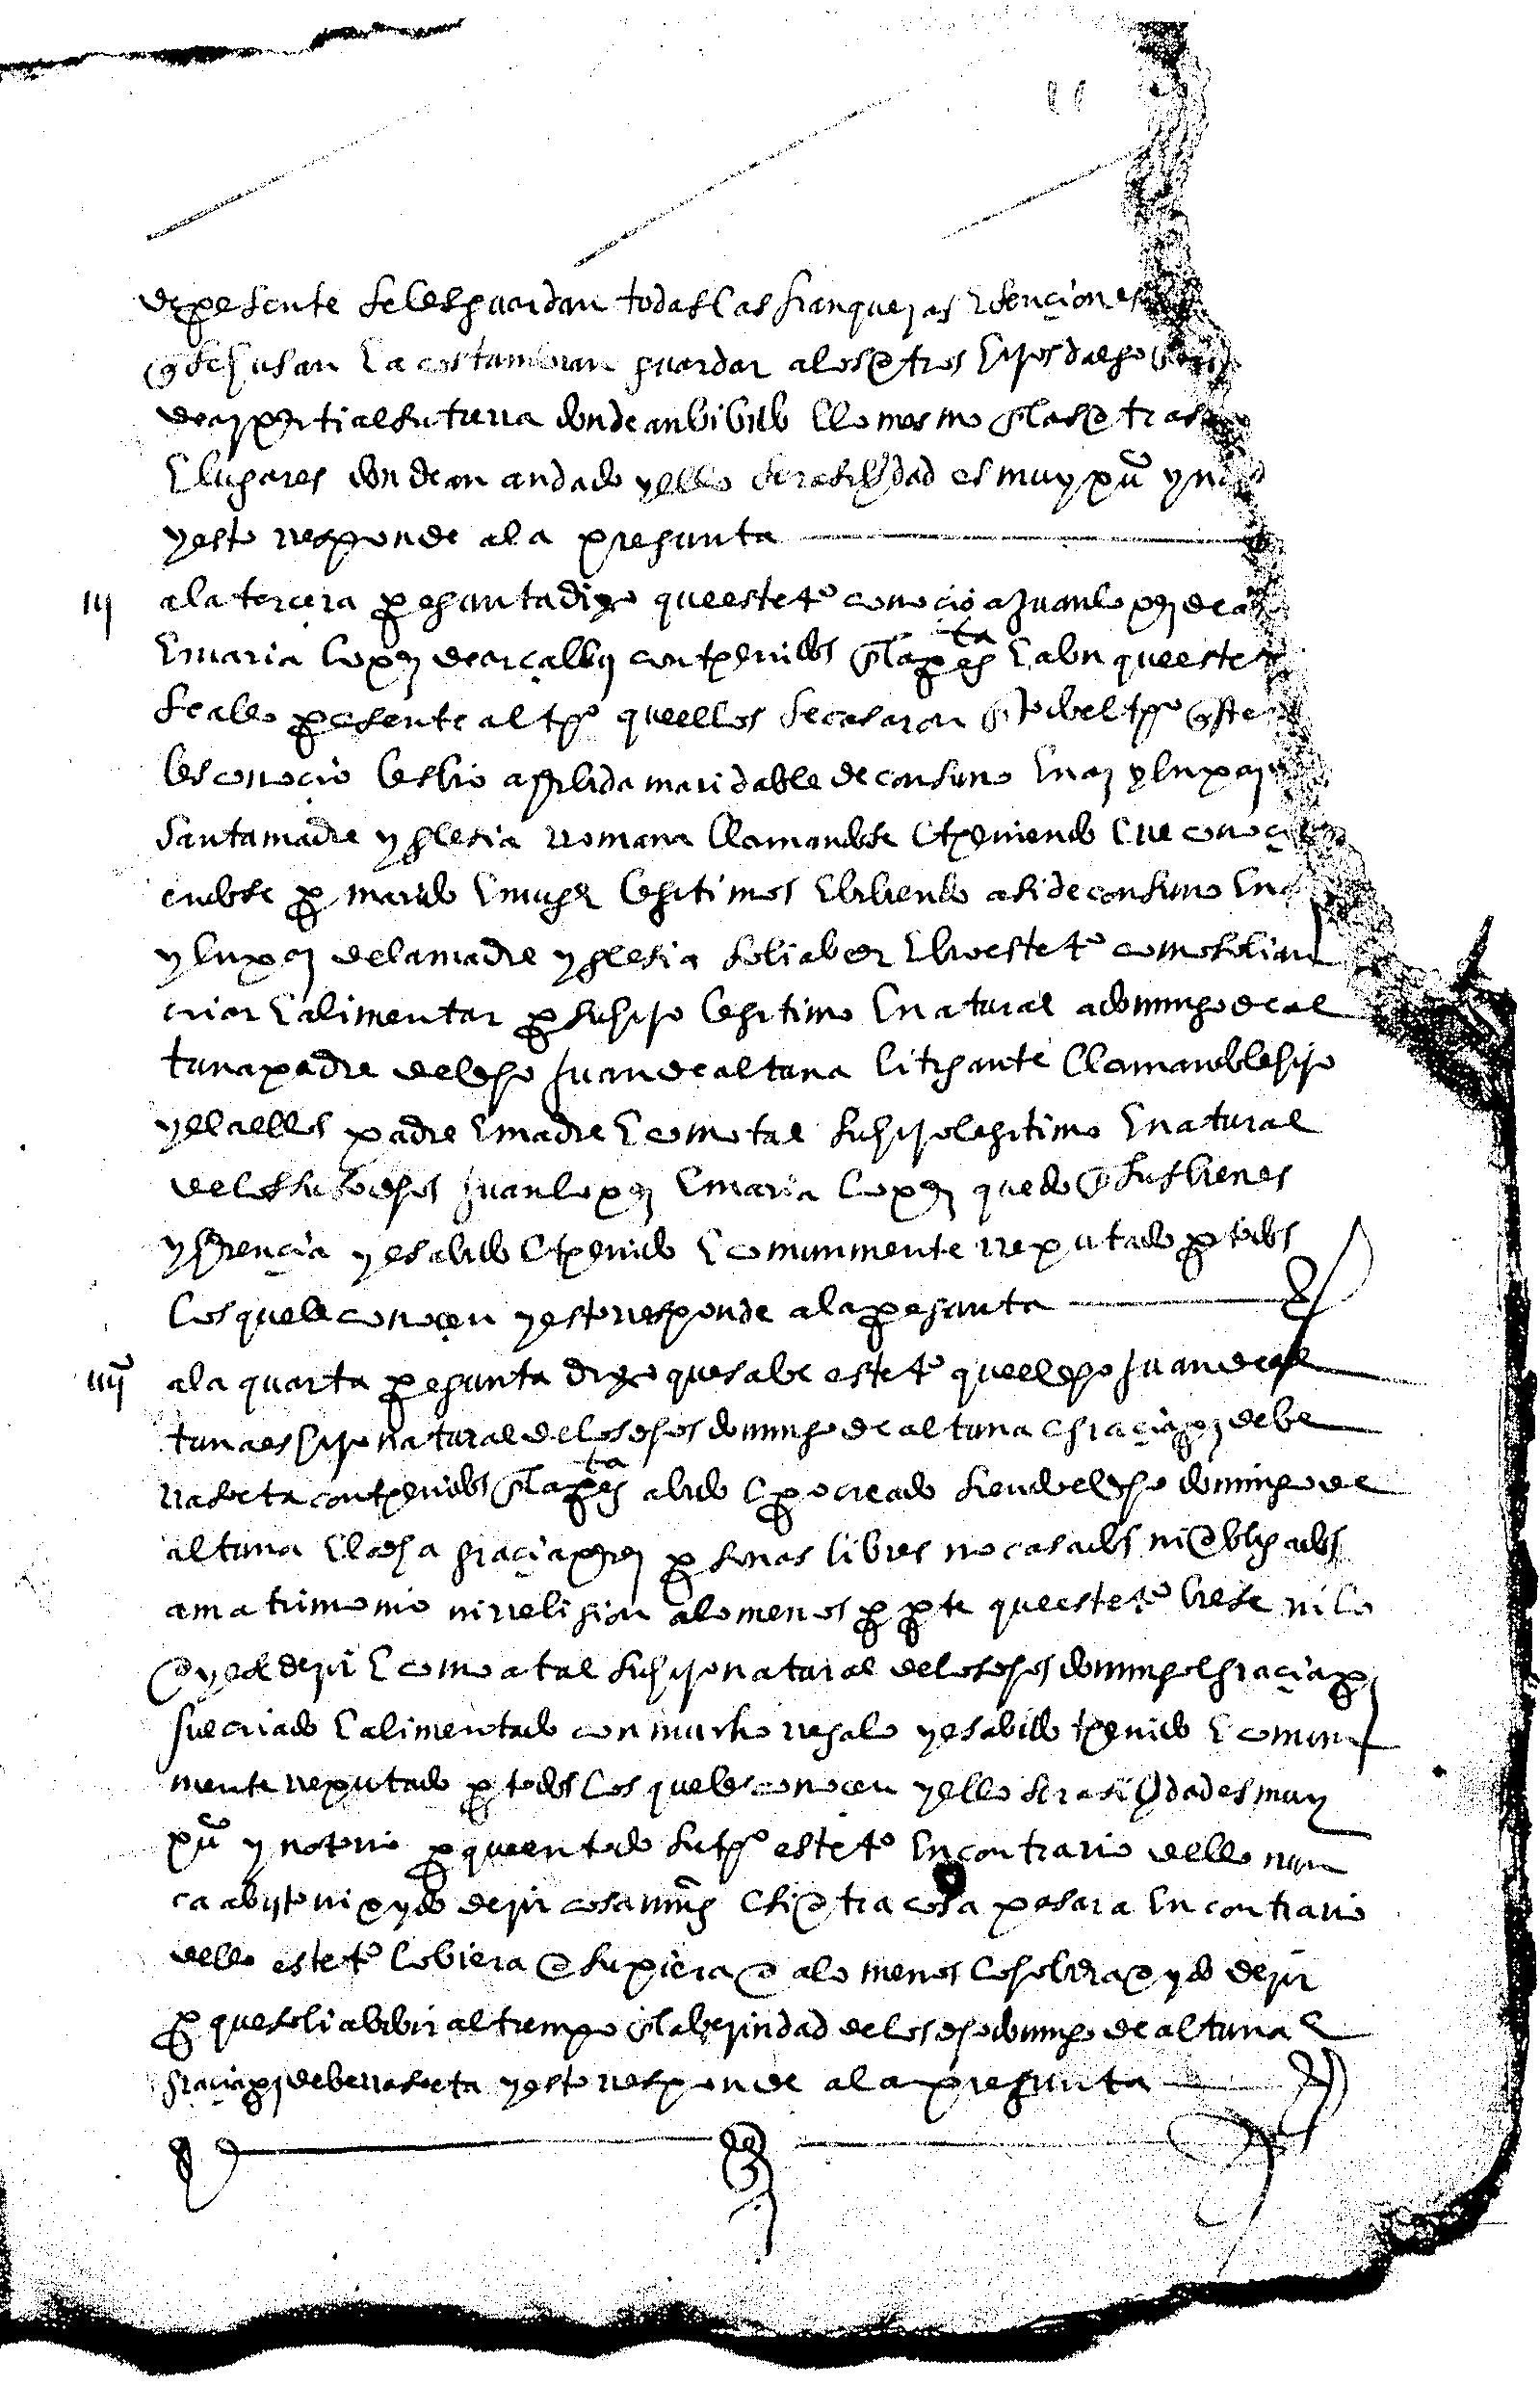 de presente se les guardan todas las franquezas y senciones
q se usan E acostumbran guardar a los otros hijos dalgo
donde an bibido E lo mesmo en las otras
E lugares donde an andado y ello ser asi berdad es muy pu.co y no
y esto rresponde a la pregunta
iij a la tercera pregunta dixo que este t.o conocio a Juan lopez de
E maria lopez de arcallus contenidos en la preg.ta E aun que este t.o
se allo presente al tp.o que ellos se casaron en todo el tp.o q este
les conocio les bio azer bida maridable de consuno En az y en paz de
santa madre yglesia rromana llamandose E teniendo E reconoci
endose por marido E muger legitimos E bibiendo asi de consuno En az
y en paz de la madre yglesia solia ber E bio este t.o como solian
criar E alimentar por su hijo legitimo E natural a domingo de al
tuna padre del dho Juan de altuna litigante llamandole hijo
y el a ellos padre E madre E como tal su hijo legitimo E natural
de los susodhos Juan lopez E maria lopez quedo en sus bienes
y herençia y es abido E tenido E comunmente rreputado por todos
los que le conocen y esto rresponde a la pregunta
iiij a la quarta pregunta dixo que sabe este t.o que el dho Juan de al
tuna es hijo natural de los dhos domingo de altuna E graçia perez de be
rrasoeta contenidos en la preg.ta abido E procreado siendo el dho domingo de
altuna E la dha graçia perez personas libres no casados ni obligados
a matrimonio ni rreligion a lo menos por parte que este t.o biese ni lo
oyese dezir E como a tal su hijo natural de los dhos domingo E graçia perez
fue criado E alimentado con mucho rregalo y es abido tenido E comun
mente rreputado por todos los que les conocen y ello ser asi berdad es muy
pu.co y notorio por que en todo su tp.o este t.o En contrario dello nun
ca a bisto ni oydo dezir cosa ning.a E si otra cosa pasara En contrario
dello este t.o lo biera o supiera o a lo menos lo hobiera oydo dezir
por que solia bibir al tiempo en la bezindad de los dhos domingo de altuna E
graçia perez de berrasoeta y esto rresponde a la pregunta